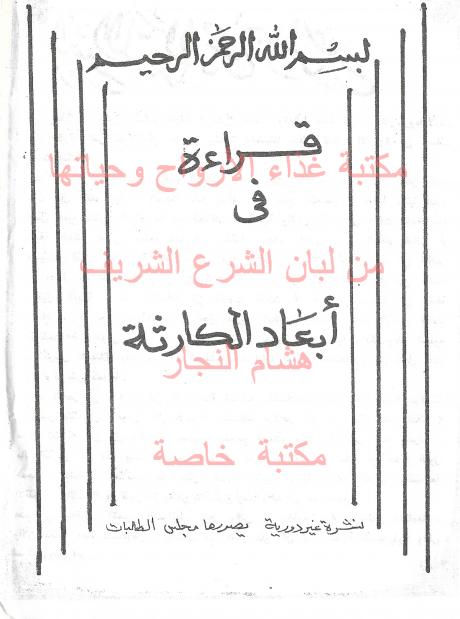 بسم الله الرحمن الرحيم
قراءة
مكتبة غذاء الارواح وحياتها
فى
من لبان الشرع الشريف
أبعاد الكارثة
هشام النجار
مكتبة خاصة
نشرة غير دورية يصدرها مجلس الطالبات